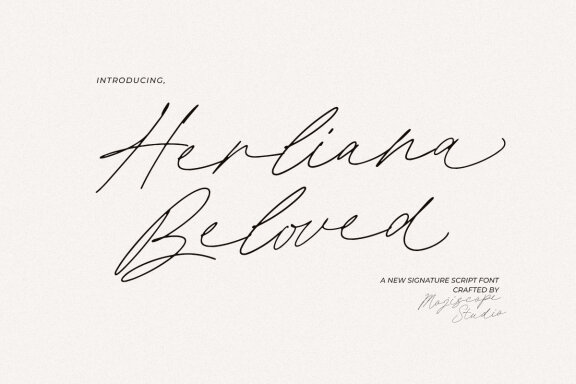 INTRODUCING,
Herliana
Beloved
A NEW SIGNATURE SCRIPT FONT
CRAFTED BY
Magiscape
Studio